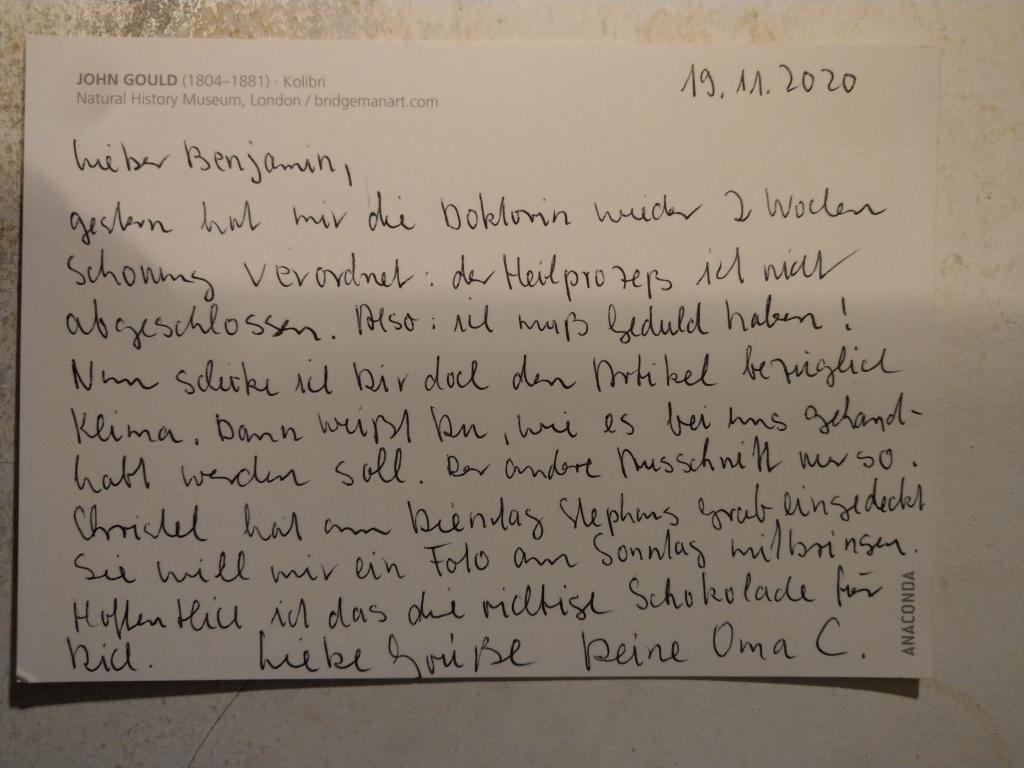 JOHN GOULD (1804–1881) · Kolibri
Natural History Museum, London / bridgemanart.com
19.11.2020
Lieber Benjamin,
gestern hat mir die Doktorin wieder 2 Wochen
Schonung verordnet: der Heilprozeß ist nicht
abgeschlossen. Also: ich muß Geduld haben!
Nun schicke ich Dir doch den Artikel bezüglich
Klima. Dann weißt Du, wie es bei uns gehand-
habt werden soll. Der andere Ausschnitt nur so.
Christel hat am Dienstag Stephans Grab eingedeckt
Sie will mir ein Foto am Sonntag mitbringen.
Hoffentlich ist das die richtige Schokolade für
Dich. Liebe Grüße Deine Oma C.
ANACONDA